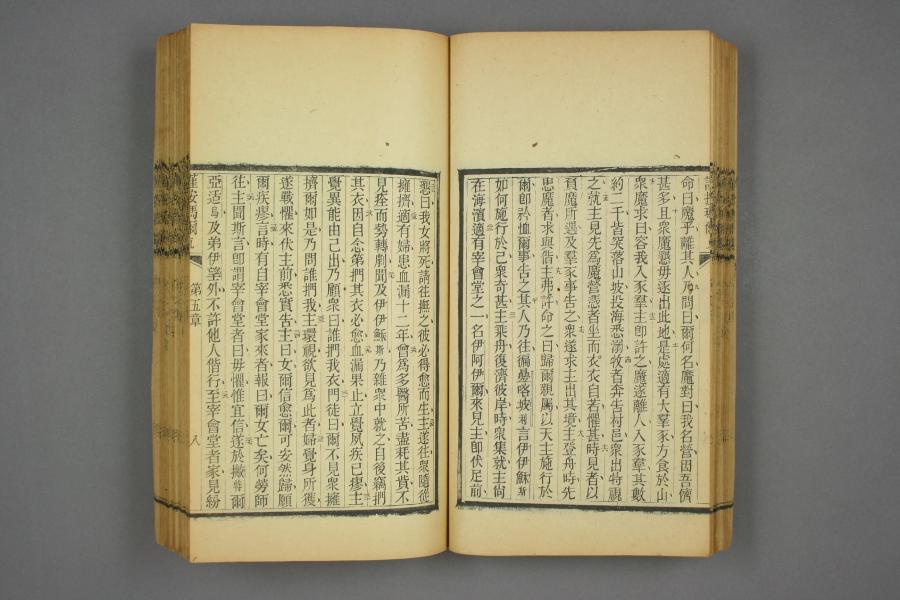 命曰魔乎離其人乃問曰爾何名魔對曰我名營因吾儕
甚多且衆魔懇毋逐出此地是處適有大羣豕方食於山
衆魔求曰容我入豕羣主卽許之魔遂離人入豕羣其數
約二千皆突落山坡投海悉溺牧者奔告村邑衆出特視
之就主見先爲魔營憑者坐而衣衣自若懼甚時見者以
負魔所遇及羣豕事告之衆遂求主出其境主登舟時先
患魔者求與偕主弗許命之曰歸爾親屬以天主施行於
爾卽矜恤爾事告之其人乃往徧變喀坡 言伊伊穌斯
如何施行於己衆奇甚主乘舟復濟彼岸時衆集就主尙
在海濱適有宰會堂之一名伊阿伊爾來見主卽伏足前
懇曰我女將死請往撫之彼必得愈而生主遂往衆隨從
擁擠適有婦患血漏十二年曾爲多醫所苦盡耗其貲不
見痊而勢轉劇聞及伊伊穌斯乃雜衆中就之自後竊捫
其衣因自念第捫其衣必愈血漏果止立覺夙疾已瘳主
覺異能由己出乃顧衆曰誰捫我衣門徒曰爾不見衆擁
擠爾如是乃問誰捫我主環視欲見爲此者婦覺身所獲
遂戰懼來伏主前悉實告主曰女爾信愈爾可安然歸願
爾疾瘳言時有自宰會堂家來者報曰爾女亡矣何勞師
往主聞斯言卽謂宰會堂者曰毋懼惟宜信遂於撇特爾
亞适烏及弟伊望外不許他人偕行至宰會堂者家見紛
馬爾
第五章
八